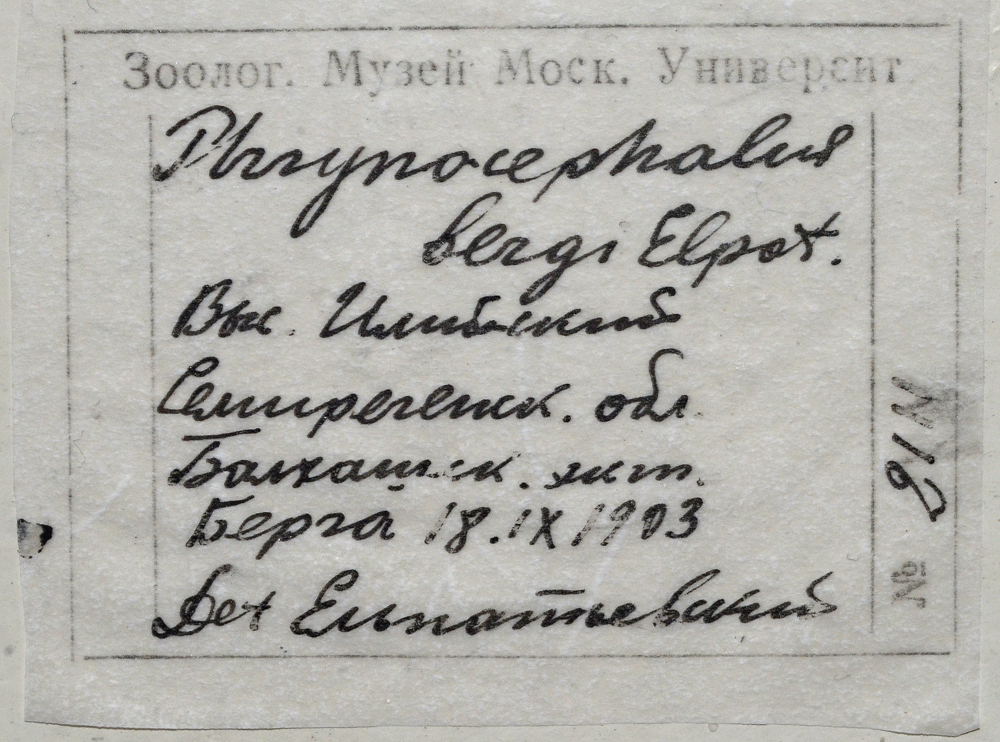 Зоолог. Музей Моск. Университ
Phrynocephalus
bergi Elpat.
Вык. Илийский
Семиреченск. обл.
Балхашск. экт.
Берга 18.IX 1903
Det Ельпатьевский
№